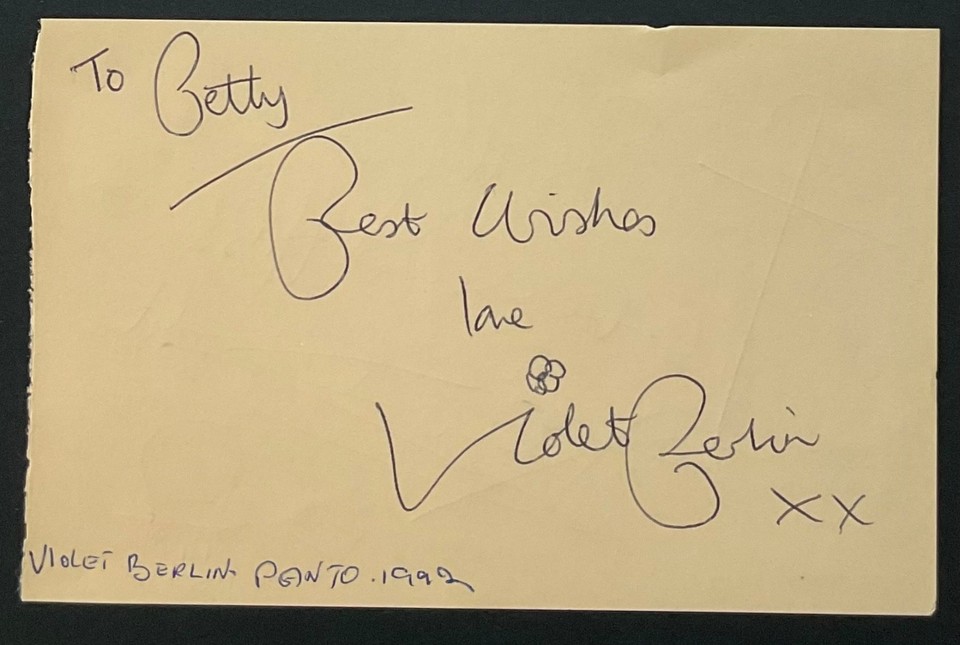 To Betty
Best Wishes
love
Violet Berlin
XX
VIOLET BERLIN PANTO. 1992